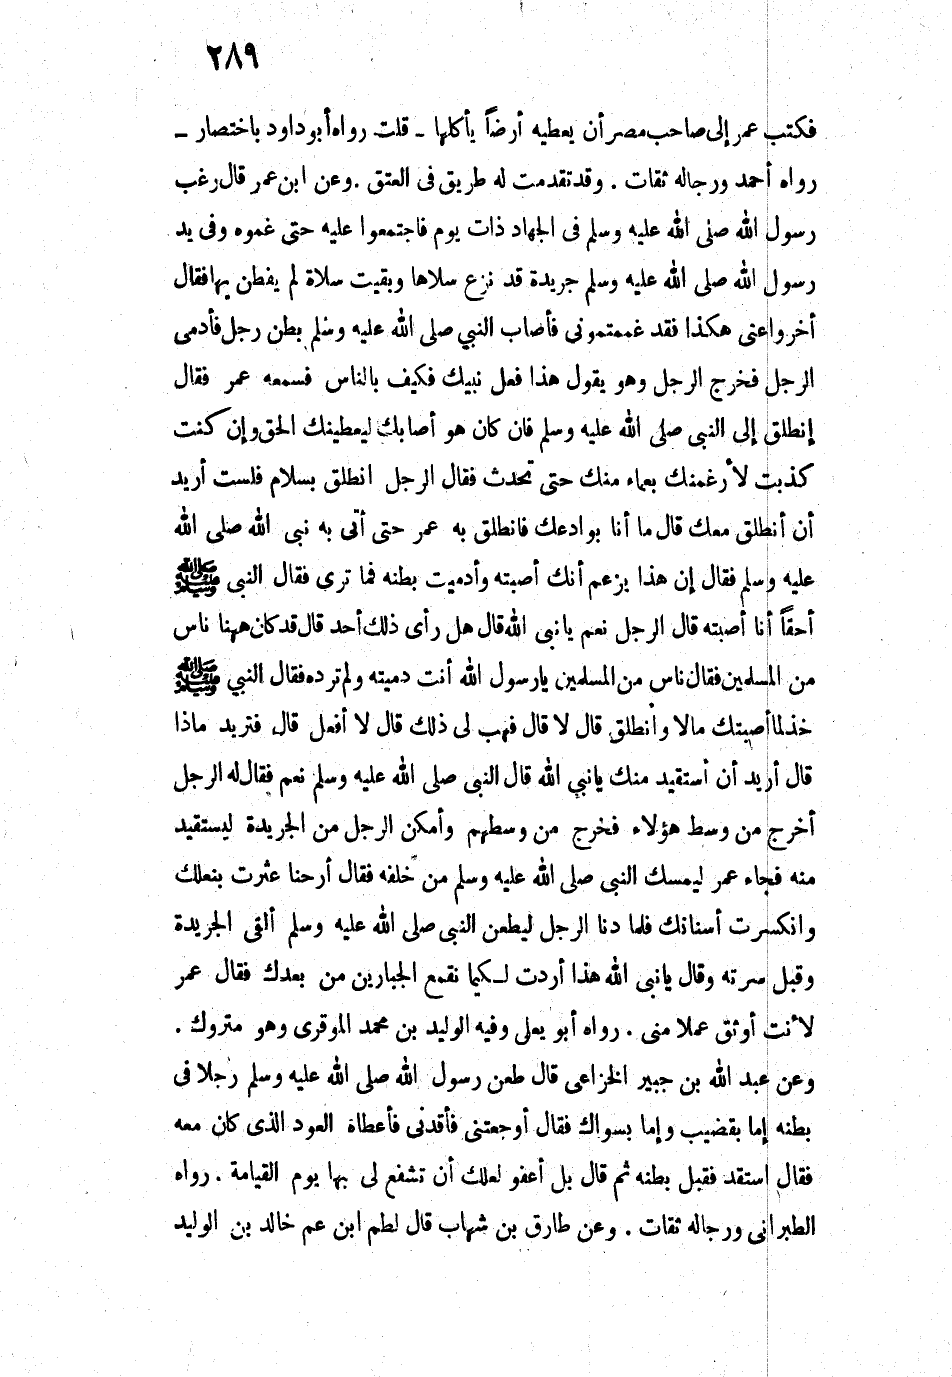 ٢٨٩
فكتب عمر إلى صاحب مصر أن يعطيه أرضاً يأكلها ـ قلت رواه أبو داود باختصار ـ
رواه أحمد ورجاله ثقات . وقد تقدمت له طريق فى العتق . وعن ابن عمر قال رغب
رسول الله صلى الله عليه وسلم فى الجهاد ذات يوم فاجتمعوا عليه حتى غموه وفى يد
رسول الله صلى الله عليه وسلم جريدة قد نزع سلاها وبقيت سلاة لم يفطن بها فقال
أخروا عنى هكذا فقد غممتمونى فأصاب النبي صلى الله عليه وسلم بطن رجل فأدمى
الرجل فخرج الرجل وهو يقول هذا فعل نبيك فكيف بالناس فسمعه عمر فقال
إنطلق إلى النبى صلى الله عليه وسلم فان كان هو أصابك ليعطينك الحق وإن كنت
كذبت لأرغمنك بعماء منك حتى تحدث فقال الرجل انطلق بسلام فلست أريد
أن أنطلق معك قال ما أنا بوادعك فانطلق به عمر حتى أتى به نبى الله صلى الله
عليه وسلم فقال إن هذا يزعم أنك أصبته وأدميت بطنه فما ترى فقال النبى ﷺ
أحقاً أنا أصبته قال الرجل نعم يا نبى الله قال هل رأى ذلك أحد قال قد كان ههنا ناس
من المسلمين فقال ناس من المسلمين يا رسول الله أنت دميته ولم ترده فقال النبي ﷺ
خذ لما أصبتك مالا وانطلق قال لا قال فهب لى ذلك قال لا أفعل قال فتريد ماذا
قال أريد أن أستقيد منك يا نبي الله قال النبى صلى الله عليه وسلم نعم فقال له الرجل
أخرج من وسط هؤلاء فخرج من وسطهم وأمكن الرجل من الجريدة ليستقيد
منه فجاء عمر ليمسك النبى صلى الله عليه وسلم من خلفه فقال أرحنا عثرت بنعلك
وانكسرت أسنانك فلما دنا الرجل ليطعن النبى صلى الله عليه وسلم ألقى الجريدة
وقبل سرته وقال يا نبى الله هذا أردت لـكيما نقمع الجبارين من بعدك فقال عمر
لأنت أوثق عملا منى . رواه أبو يعلى وفيه الوليد بن محمد الموقرى وهو متروك .
وعن عبد الله بن جبير الخزاعى قال طعن رسول الله صلى الله عليه وسلم رجلا فى
بطنه إما بقضيب وإما بسواك فقال أوجعتنى فأقدنى فأعطاه العود الذى كان معه
فقال استقد فقبل بطنه ثم قال بل أعفو لعلك أن تشفع لى بها يوم القيامة . رواه
الطبرانى ورجاله ثقات . وعن طارق بن شهاب قال لطم ابن عم خالد بن الوليد